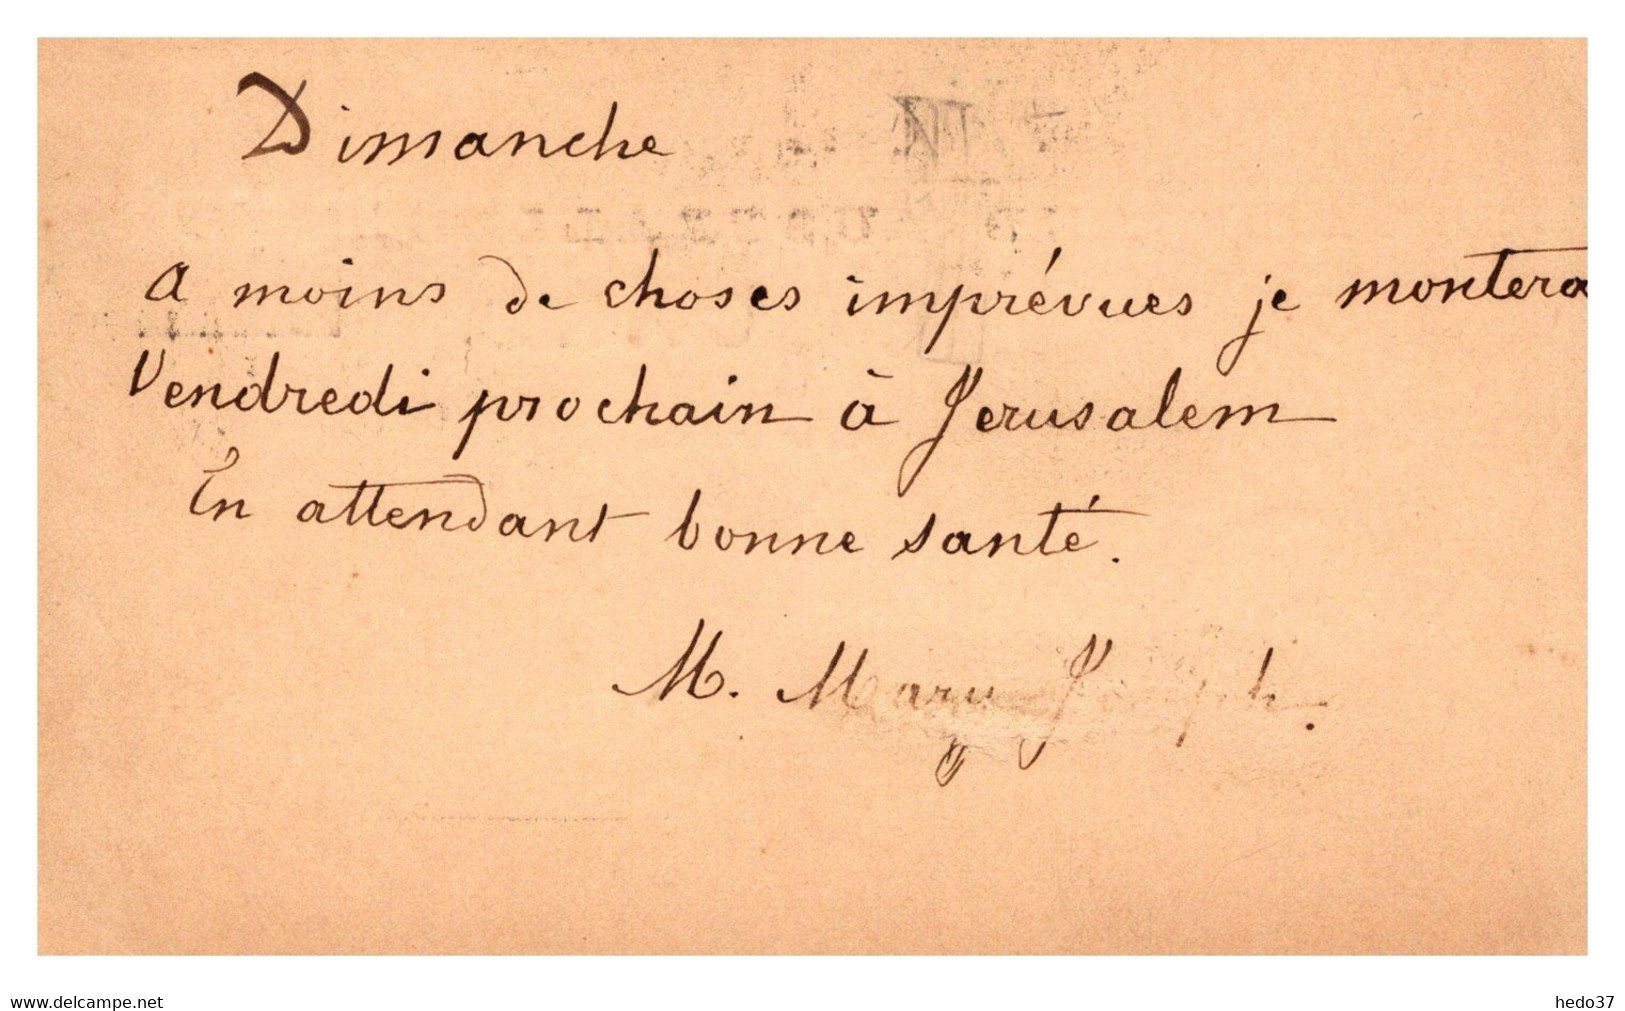 Dimanche
A moins de choses imprévues je montera
Vendredi prochain à Jerusalem
En attendant bonne santé.
M. Mary Joseph.
www.delcampe.net
hedo37